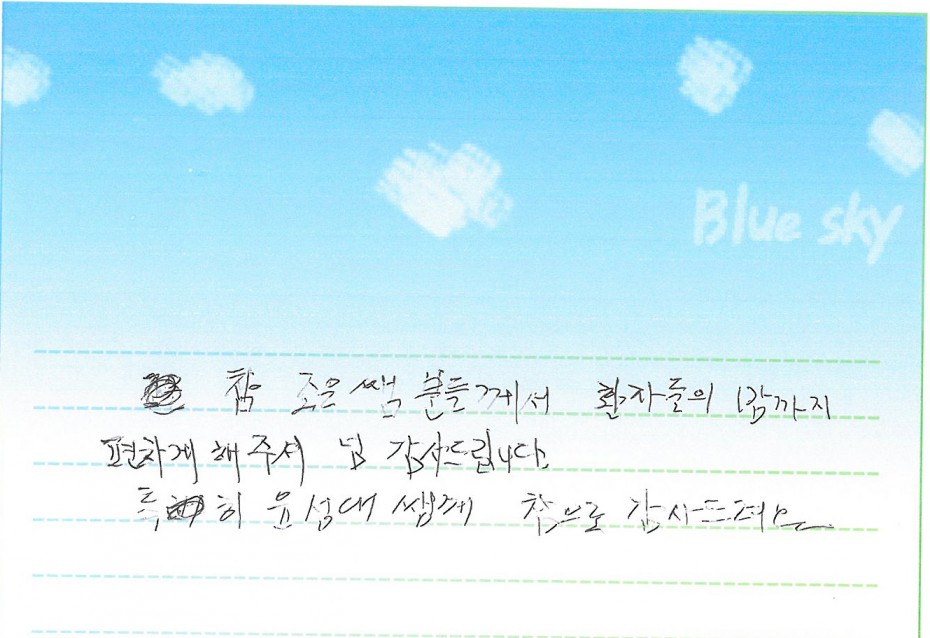 Blue sky
참 조은 쌤 분들께서 환자들의 맘까지
편하게 해주셔 넘 감사드립니다.
특히 윤성대 쌤께 참으로 감사드려요